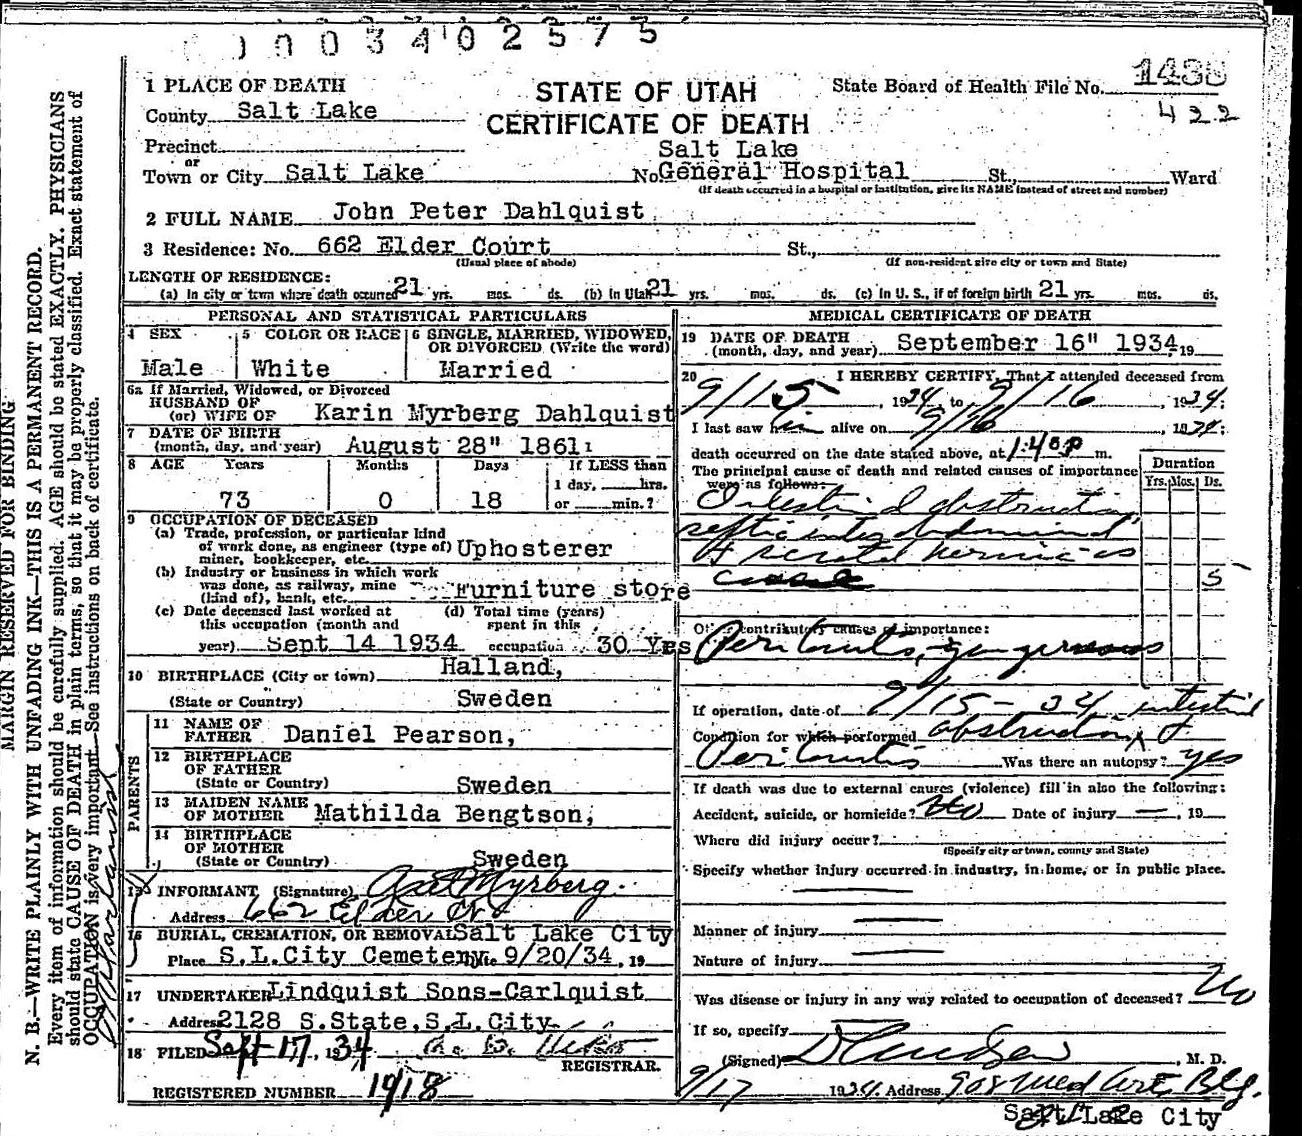 0 0 3 4 0 2 5 7 5
1 PLACE OF DEATH
STATE OF UTAH
CERTIFICATE OF DEATH
State Board of Health File No.
422
County Salt Lake
Precinct
or
Town or City Salt Lake
Salt Lake
No General Hospital St., Ward
(If death occurred in a hospital or institution, give its NAME instead of street and number)
2 FULL NAME John Peter Dahlquist
3 Residence: No. 662 Elder Court St.,
(Usual place of abode) (If non-resident give city or town and State)
LENGTH OF RESIDENCE:
(a) In city or town where death occurred 21 yrs. mos. ds. (b) In Utah 21 yrs. mos. ds. (c) In U. S., if of foreign birth 21 yrs. mos. ds.
PERSONAL AND STATISTICAL PARTICULARS
4 SEX
Male
5 COLOR OR RACE
White
6 SINGLE, MARRIED, WIDOWED,
OR DIVORCED (Write the word)
Married
6a If Married, Widowed, or Divorced
HUSBAND OF
(or) WIFE OF Karin Myrberg Dahlquist
7 DATE OF BIRTH
(month, day, and year) August 28" 1861
8 AGE Years Months Days If LESS than
1 day, hrs.
73 0 18 or min.?
9 OCCUPATION OF DECEASED
(a) Trade, profession, or particular kind
of work done, as engineer (type of)
miner, bookkeeper, etc. Uphosterer
(b) Industry or business in which work
was done, as railway, mine
(kind of), bank, etc. Furniture store
(c) Date deceased last worked at
this occupation (month and
year) Sept 14 1934
(d) Total time (years)
spent in this
occupation 30 Yes
10 BIRTHPLACE (City or town) Halland,
(State or Country) Sweden
PARENTS
11 NAME OF
FATHER Daniel Pearson,
12 BIRTHPLACE
OF FATHER
(State or Country) Sweden
13 MAIDEN NAME
OF MOTHER Mathilda Bengtson,
14 BIRTHPLACE
OF MOTHER
(State or Country) Sweden
15 INFORMANT (Signature) Axel Myrberg.
Address 662 Elder Ct
16 BURIAL, CREMATION, OR REMOVAL Salt Lake City
Place S.L.City Cemetery 9/20/34, 19
17 UNDERTAKER Lindquist Sons-Carlquist
Address 2128 S.State,S.L.City
18 FILED Sept 17, 1934
REGISTRAR.
REGISTERED NUMBER 1918
MEDICAL CERTIFICATE OF DEATH
19 DATE OF DEATH
(month, day, and year) September 16" 1934, 19
20 I HEREBY CERTIFY, That I attended deceased from
9/15, 1934, to 9/16, 1934.
I last saw him alive on 9/16, 1934;
death occurred on the date stated above, at 1:40 p m.
The principal cause of death and related causes of importance
were as follows:
Duration
Yrs. Mos. Ds.
Intestinal obstruction
septic intra abdominal
hernia
5
Other contributory causes of importance:
Peritonitis, gangrenous
If operation, date of 9/15-34 intestinal
Condition for which performed obstruction &
Peritonitis Was there an autopsy? yes
If death was due to external causes (violence) fill in also the following:
Accident, suicide, or homicide? No Date of injury —, 19
Where did injury occur?
(Specify city or town, county and State)
Specify whether injury occurred in industry, in home, or in public place.
Manner of injury
Nature of injury
Was disease or injury in any way related to occupation of deceased? No
If so, specify
(Signed) , M. D.
9/17 1934. Address 908 Med Arts Blg.
Salt Lake City
MARGIN RESERVED FOR BINDING
N. B.—WRITE PLAINLY WITH UNFADING INK—THIS IS A PERMANENT RECORD.
Every item of information should be carefully supplied. AGE should be stated EXACTLY. PHYSICIANS
should state CAUSE OF DEATH in plain terms, so that it may be properly classified. Exact statement of
OCCUPATION is very important. See instructions on back of certificate.